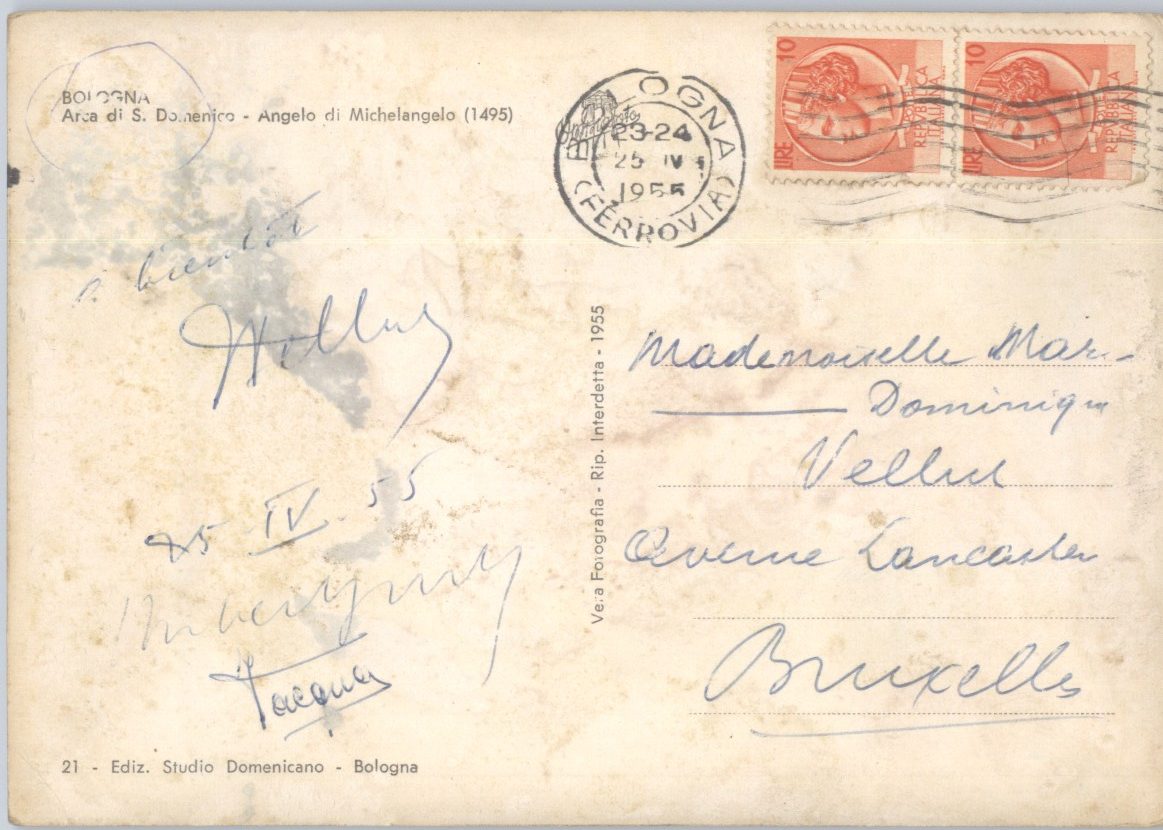 BOLOGNA
Arca di S. Domenico - Angelo di Michelangelo (1495)
BOLOGNA
23-24
25 IV
1955
(FERROVIA)
10
LIRE
REPVBBLICA
ITALIANA
10
LIRE
REPVBBLICA
ITALIANA
à bientôt
25 IV 55
21 - Ediz. Studio Domenicano - Bologna
Vera Fotografia - Rip. Interdetta - 1955
Mademoiselle
Dominique
Avenue Lancaster
Bruxelles